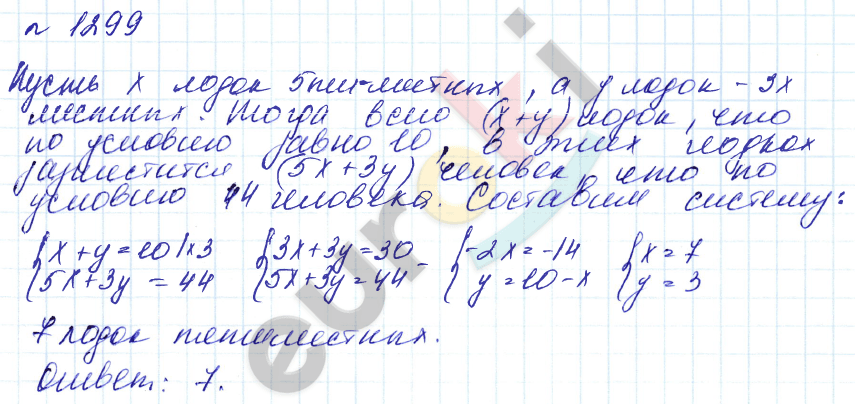 № 1299
Пусть x лодок 5ти-местных, а y лодок - 3х
местных. Тогда всего (x+y) лодок, что
по условию равно 10, в этих лодках
разместится (5x+3y) человек, что по
условию 44 человека. Составим систему:
{x+y=10 |x3 {3x+3y=30 - {-2x=-14 {x=7
{5x+3y=44 {5x+3y=44 {y=10-x {y=3
7 лодок пятиместных.
Ответ: 7.
euroki